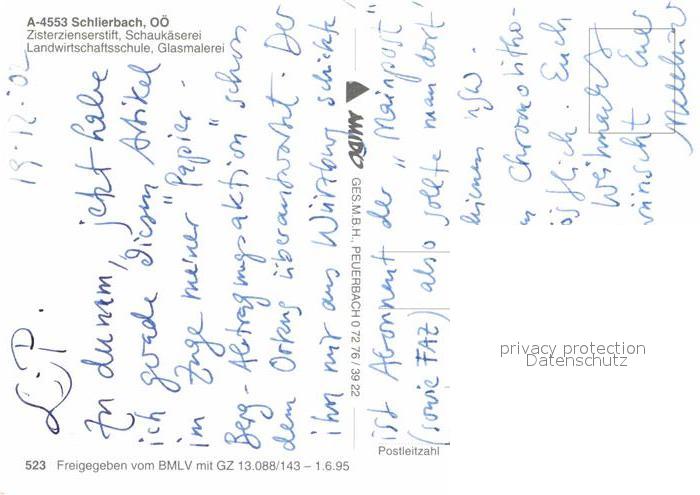 A-4553 Schlierbach, OÖ
Zisterzienserstift, Schaukäserei
Landwirtschaftsschule, Glasmalerei
19.12.02
L. P.
Zu dumm, jetzt habe
ich gerade diesen Artikel
im Zuge meiner "Papier-
Berg-Abtragungsaktion" schon
dem Orkus überantwortet. Der
ihn mir aus Würzburg schickte
ist Abonnent der "Mainpost"
(sowie FAZ) also sollte man dort
können usw.
Chromolitho-
Euch
Weihnachts
wünscht Euer
AMIDO GES.M.B.H., PEUERBACH 0 72 76 / 39 22
privacy protection
Datenschutz
Postleitzahl
523 Freigegeben vom BMLV mit GZ 13.088/143 – 1.6.95